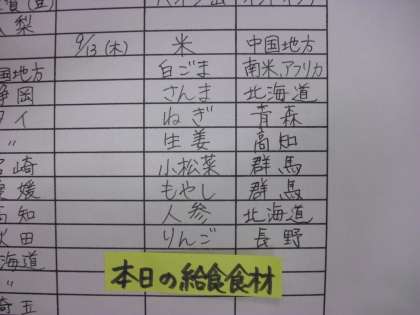 梨
9/13(木) 米 中国地方
国地方 白ごま 南米,アフリカ
静岡 さんま 北海道
タイ ねぎ 青森
〃 生姜 高知
宮崎 小松菜 群馬
愛媛 もやし 群馬
高知 人参 北海道
秋田 りんご 長野
海道
〃
埼玉
本日の給食食材